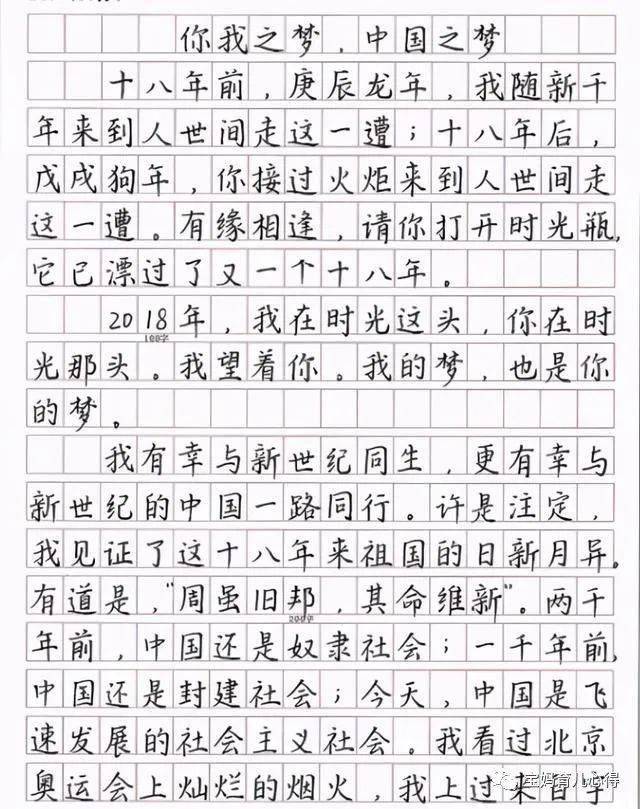 你我之梦，中国之梦
十八年前，庚辰龙年，我随新千
年来到人世间走这一遭；十八年后，
戊戌狗年，你接过火炬来到人世间走
这一遭。有缘相逢，请你打开时光瓶，
它已漂过了又一个十八年。
2018年，我在时光这头，你在时
100字
光那头。我望着你。我的梦，也是你
的梦。
我有幸与新世纪同生，更有幸与
新世纪的中国一路同行。许是注定，
我见证了这十八年来祖国的日新月异。
有道是，“周虽旧邦，其命维新”。两千
200字
年前，中国还是奴隶社会；一千年前，
中国还是封建社会；今天，中国是飞
速发展的社会主义社会。我看过北京
奥运会上灿烂的烟火，我上过来自
宝妈育儿心得